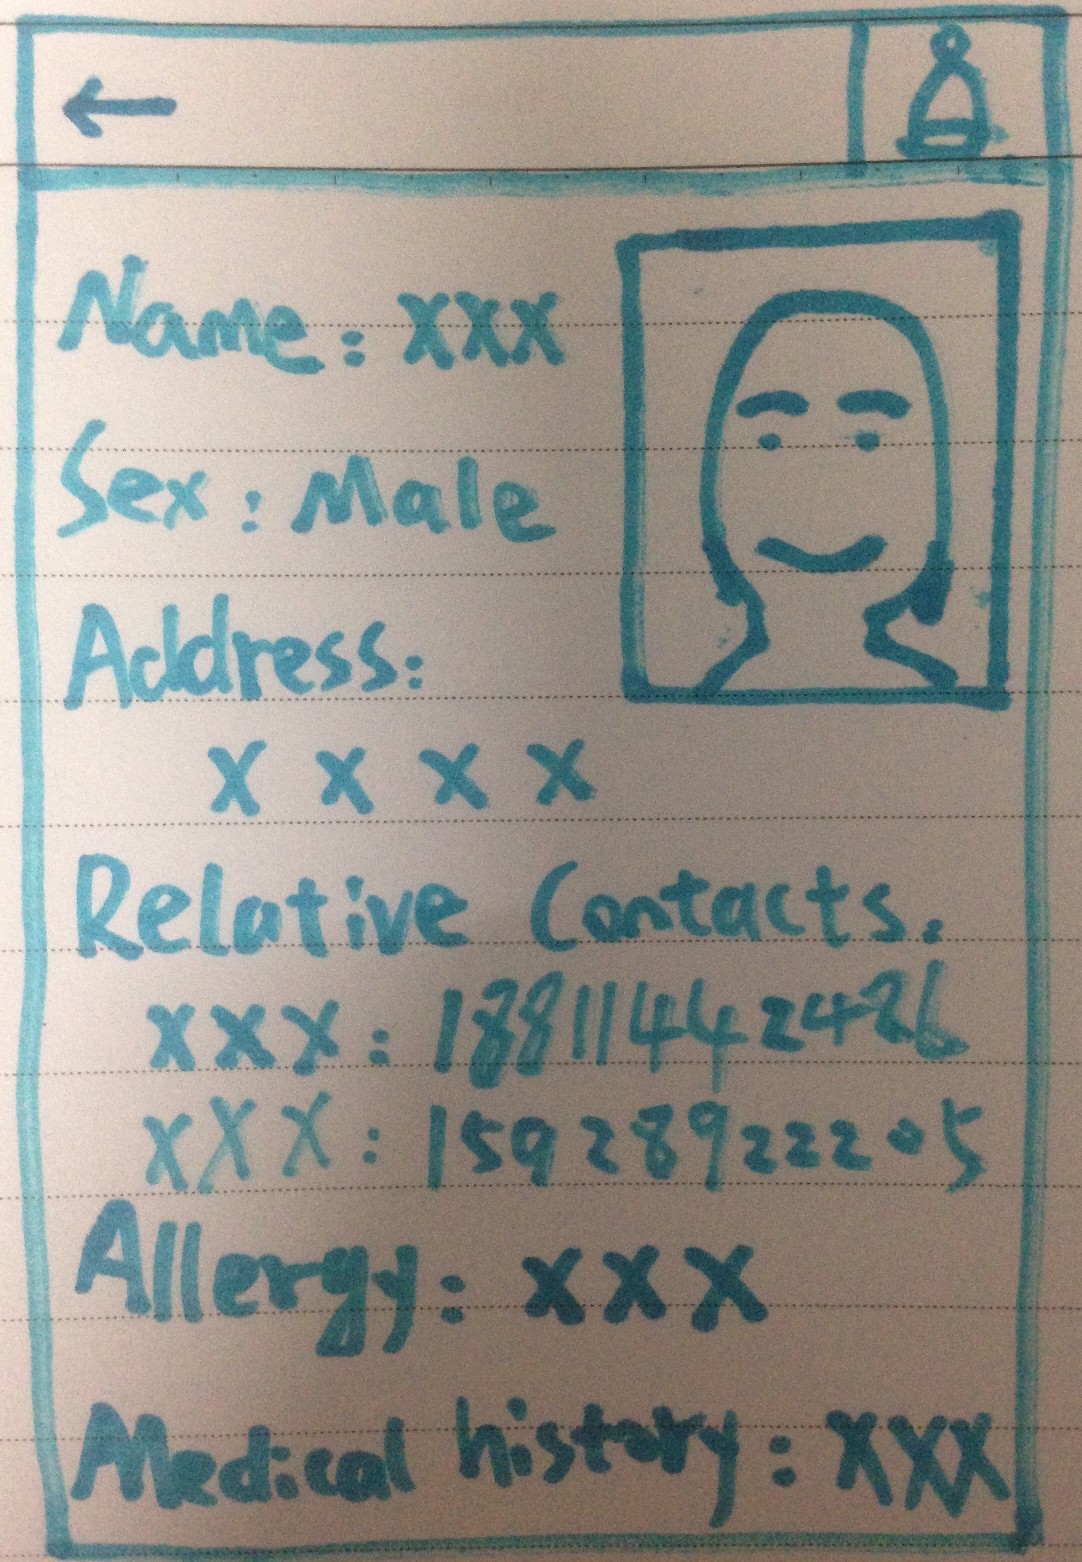 Name: XXX
Sex: Male
Address:
X X X X
Relative Contacts:
XXX: 18811442486
XXX: 15928922205
Allergy: XXX
Medical history: XXX